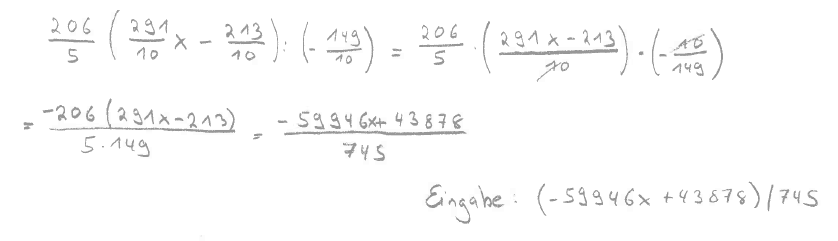 206/5 (291/10 x - 213/10) : (-149/10) = 206/5 · ((291x-213)/10) · (-10/149)
= -206(291x-213)/(5·149) = (-59946x+43878)/745
Eingabe: (-59946x+43878)/745